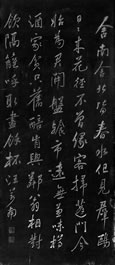 舍南舍北皆春水但見羣鷗
日日來花徑不曾緣客掃蓬門今
始為君開盤飧市遠無兼味樽
酒家貧只舊醅肯與鄰翁相對
飲隔籬呼取盡餘杯